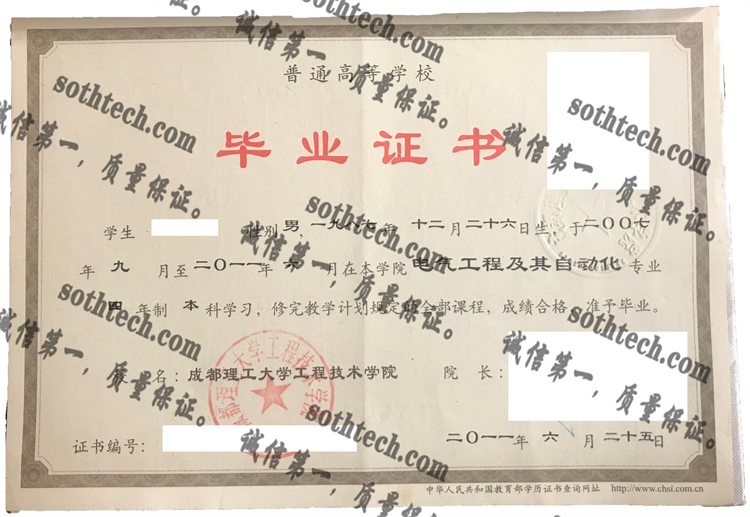 普通高等学校
毕业证书
学生 性别 男，一九八七年 十二月二十六日生，于二〇〇七
年 九 月至二〇一一年 六 月在本学院 电气工程及其自动化 专业
四 年制 本 科学习，修完教学计划规定的全部课程，成绩合格，准予毕业。
校 名：成都理工大学工程技术学院 院 长：
证书编号： 二〇一一年 六 月二十五日
中华人民共和国教育部学历证书查询网址 http://www.chsi.com.cn
成都理工大学工程技术学院
sothtech.com
诚信第一，质量保证。
sothtech.com
诚信第一，质量保证。
sothtech.com
诚信第一，质量保证。
sothtech.com
诚信第一，质量保证。
sothtech.com
诚信第一，质量保证。
sothtech.com
诚信第一，质量保证。
sothtech.com
诚信第一，质量保证。
sothtech.com
诚信第一，质量保证。